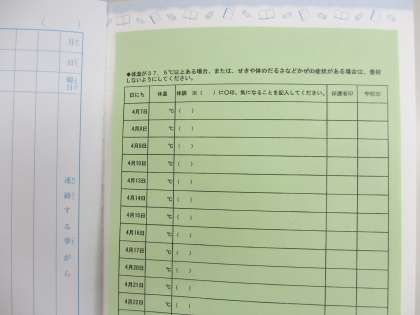 ◆体温が37．5℃以上ある場合、または、せきや体のだるさなどかぜの症状がある場合は、登校
しないようにしてください。
日にち 体温 体調 ※（ ）に○印、気になることを記入してください。 保護者印 学校印
4月7日 ℃ （ ）
4月8日 ℃ （ ）
4月9日 ℃ （ ）
4月10日 ℃ （ ）
4月13日 ℃ （ ）
4月14日 ℃ （ ）
4月15日 ℃ （ ）
4月16日 ℃ （ ）
4月17日 ℃ （ ）
4月20日 ℃ （ ）
4月21日 ℃ （ ）
4月22日 ℃ （ ）
日
日
曜日
連絡する事がら